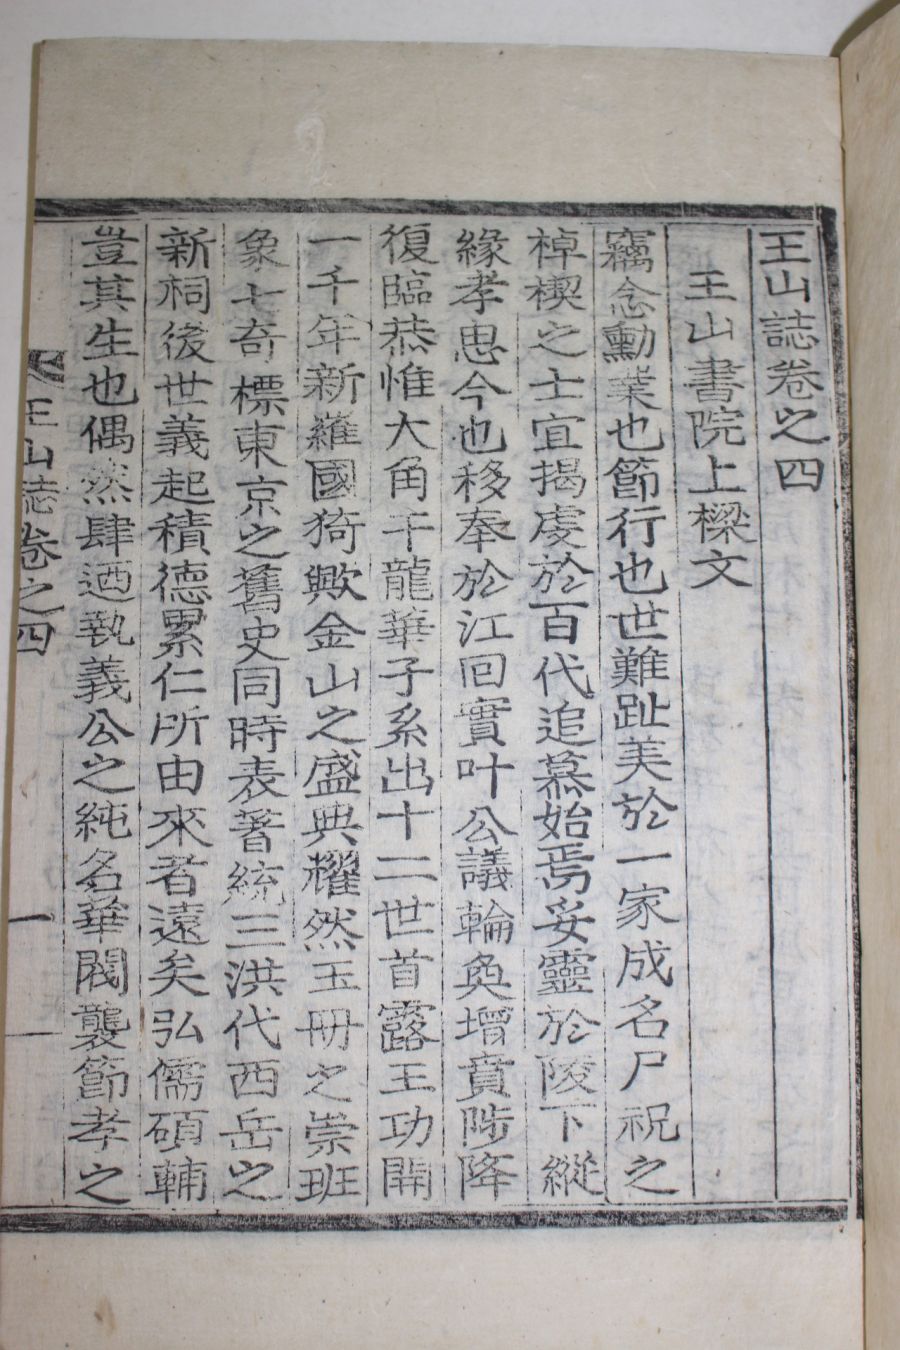 王山誌卷之四
王山書院上樑文
竊念勳業也節行也世難趾美於一家成名尸祝之
棹楔之士宜揭虔於百代追慕始焉妥靈於陵下縱
緣孝思今也移奉於江回實叶公議輪奐增賁陟降
復臨恭惟大角干龍華子系出十二世首露王功開
一千年新羅國猗歟金山之盛典耀然玉冊之崇班
象七奇標東京之舊史同時表著統三洪代西岳之
新祠後世義起積德累仁所由來者遠矣弘儒碩輔
豈其生也偶然肆迺執義公之純名華閥襲節孝之
王山誌卷之四 一